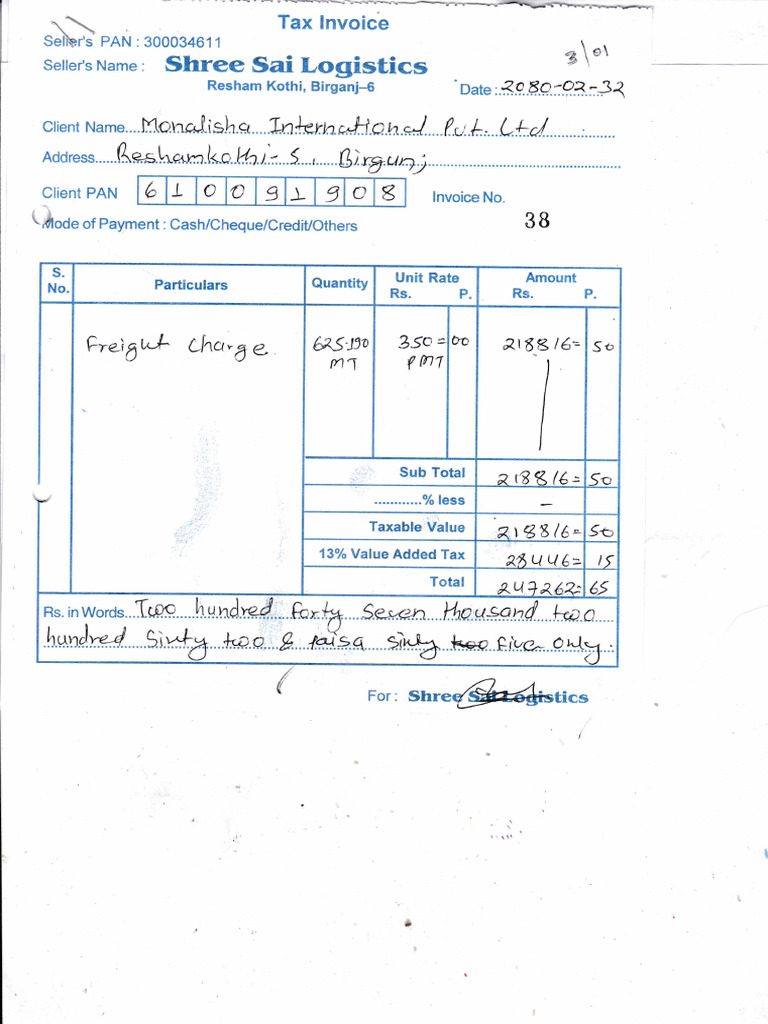 Tax Invoice
Seller's PAN : 300034611
3/01
Seller's Name : Shree Sai Logistics
Resham Kothi, Birganj–6
Date : 2080-02-32
Client Name Monalisha International Pvt. Ltd
Address Reshamkothi-5, Birgunj
Client PAN 610091908 Invoice No.
Mode of Payment : Cash/Cheque/Credit/Others 38
S. No. Particulars Quantity Unit Rate Rs. P. Amount Rs. P.
Freight Charge 625.190 350=00 218816=50
MT PMT
Sub Total 218816=50
............% less –
Taxable Value 218816=50
13% Value Added Tax 28446=15
Total 247262=65
Rs. in Words Two hundred forty seven thousand two
hundred Sixty two & paisa sixty five only.
For : Shree Sai Logistics